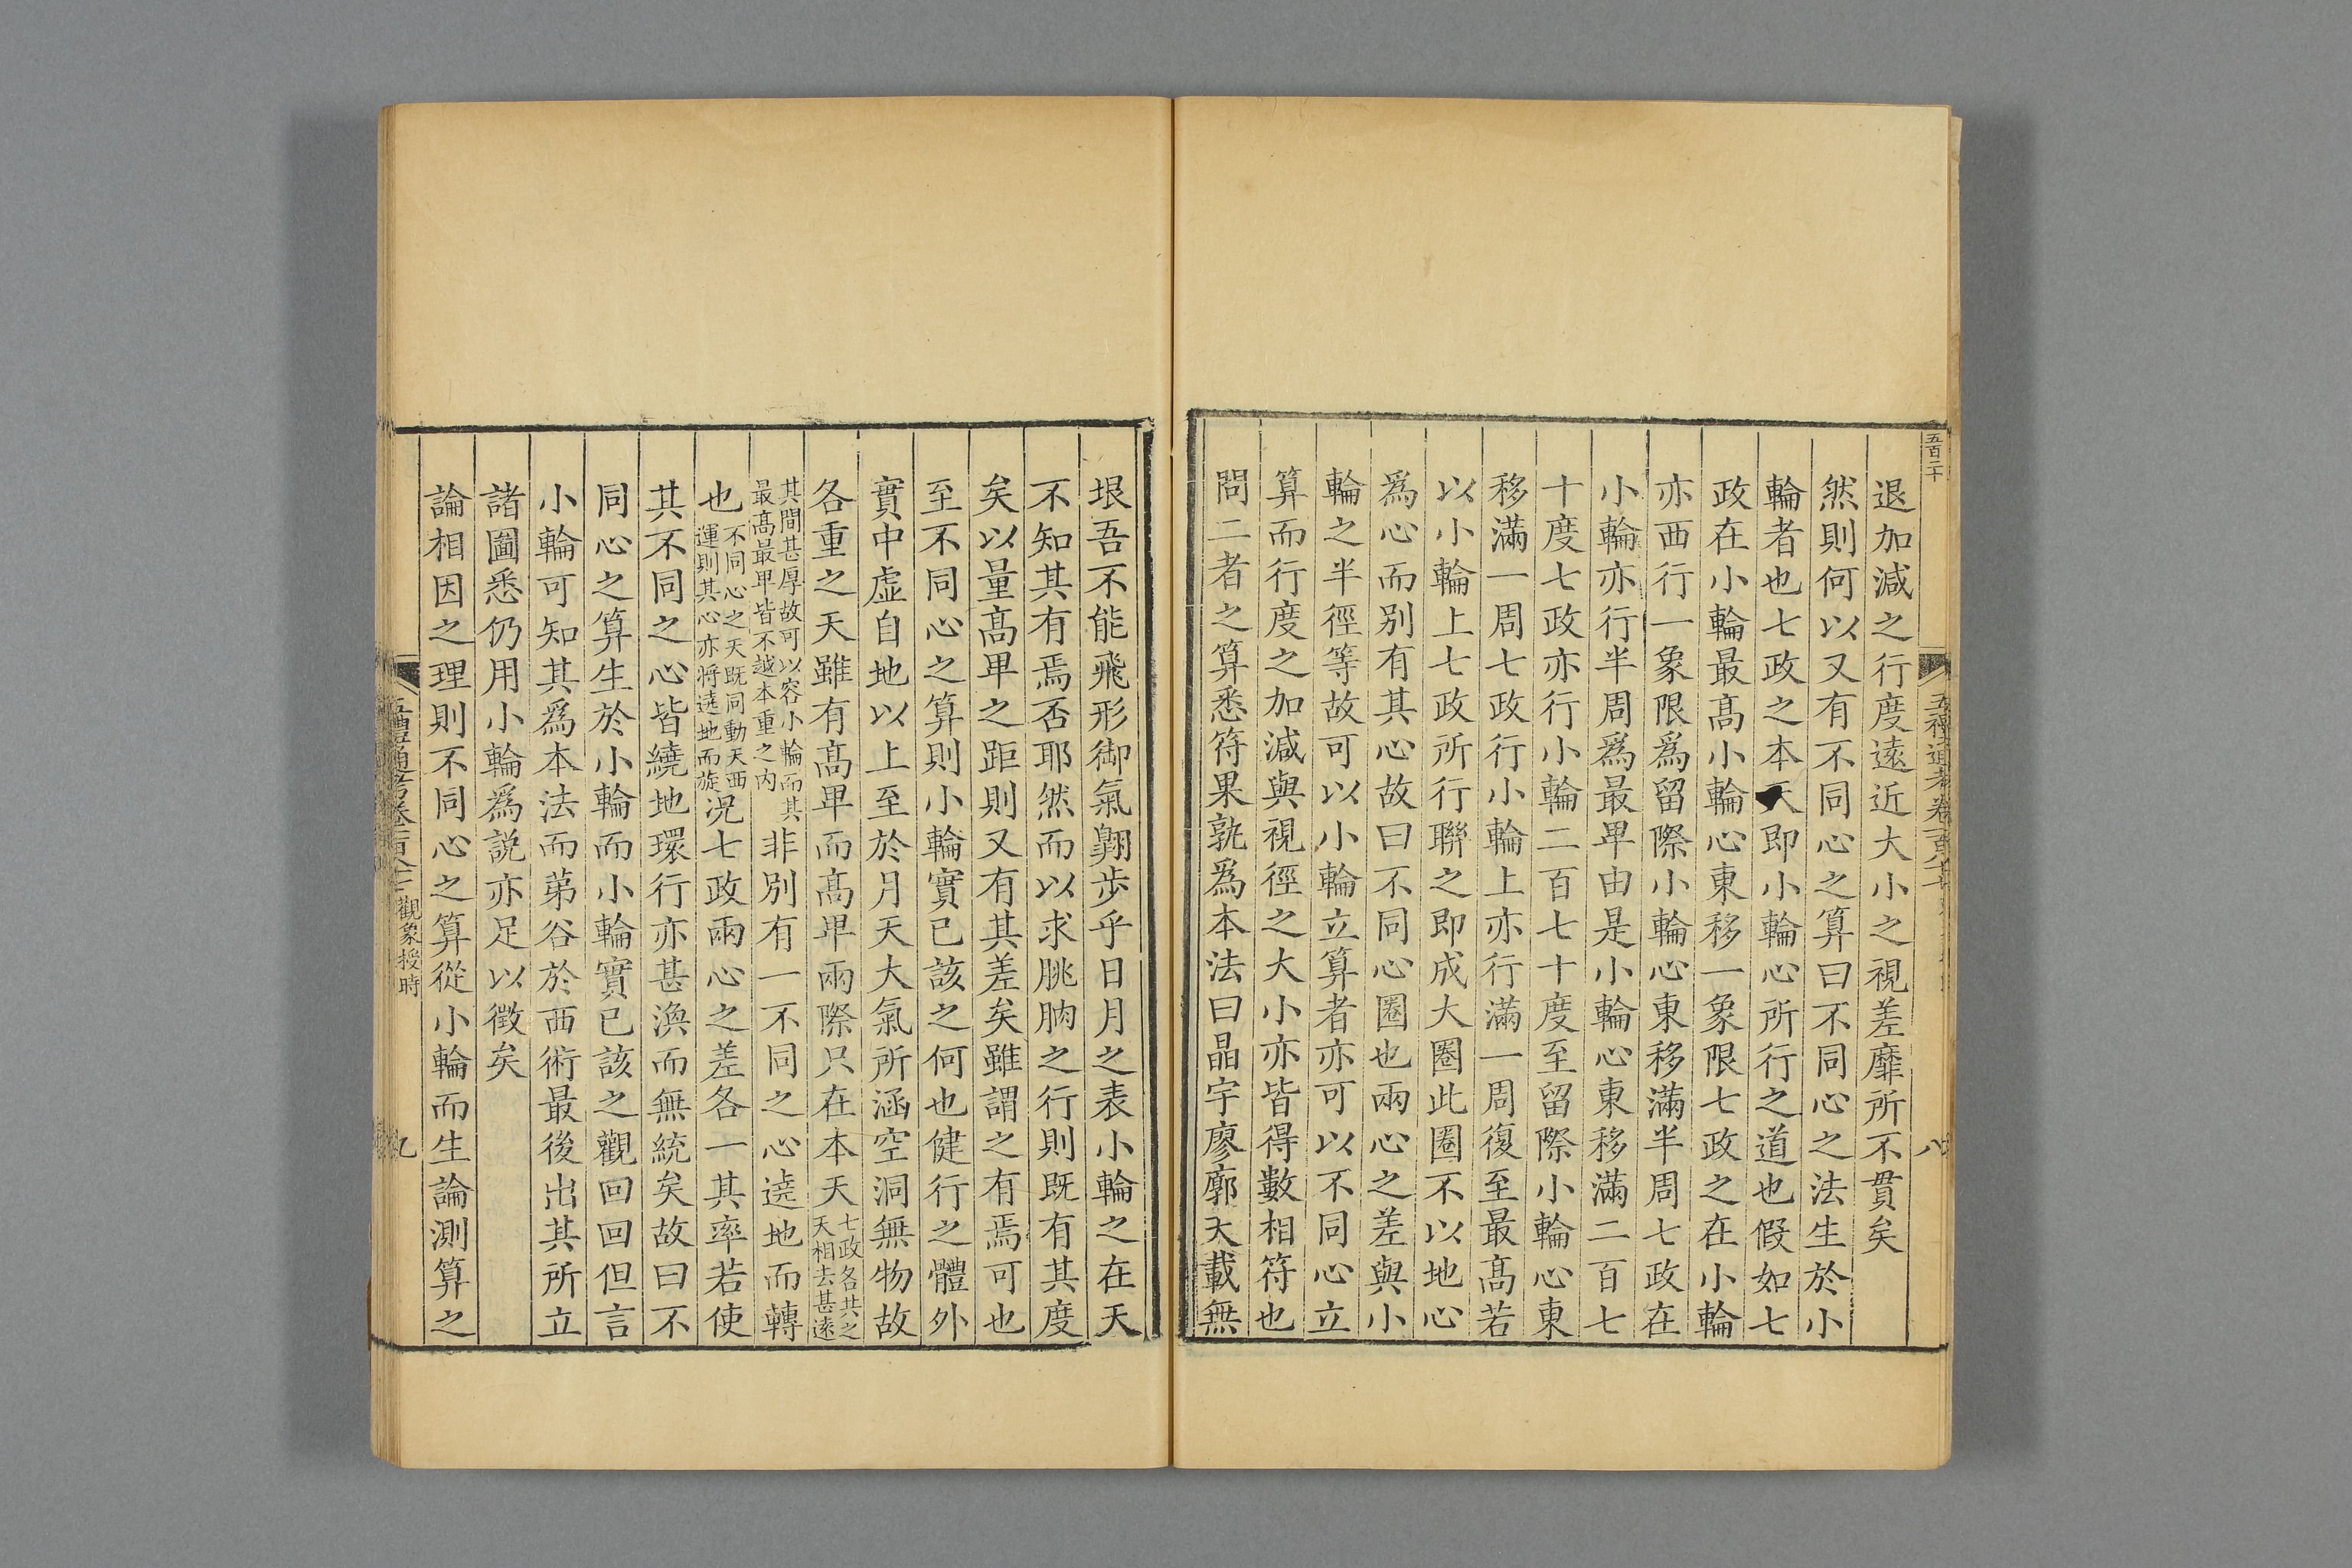 五百二十
五禮通考卷一百八十
八
退加減之行度遠近大小之視差靡所不貫矣
然則何以又有不同心之算曰不同心之法生於小
輪者也七政之本天即小輪心所行之道也假如七
政在小輪最高小輪心東移一象限七政之在小輪
亦西行一象限爲留際小輪心東移滿半周七政在
小輪亦行半周爲最卑由是小輪心東移滿二百七
十度七政亦行小輪二百七十度至留際小輪心東
移滿一周七政行小輪上亦行滿一周復至最高若
以小輪上七政所行聯之即成大圈此圈不以地心
爲心而别有其心故曰不同心圈也兩心之差與小
輪之半徑等故可以小輪立算者亦可以不同心立
算而行度之加減與視徑之大小亦皆得數相符也
問二者之算悉符果孰爲本法曰晶宇廖廓天載無
垠吾不能飛形御氣翺步乎日月之表小輪之在天
不知其有焉否耶然而以求朓朒之行則既有其度
矣以量高卑之距則又有其差矣雖謂之有焉可也
至不同心之算則小輪實已該之何也健行之體外
實中虛自地以上至於月天大氣所涵空洞無物故
各重之天雖有高卑而高卑兩際只在本天七政各共之
天相去甚遠
其間甚厚故可以容小輪而其
最高最卑皆不越本重之内非別有一不同之心遶地而轉
也不同心之天既同動天西
運則其心亦將遶地而旋况七政兩心之差各一其率若使
其不同之心皆繞地環行亦甚渙而無統矣故曰不
同心之算生於小輪而小輪實已該之觀回回但言
小輪可知其爲本法而第谷於西術最後出其所立
諸圖悉仍用小輪爲説亦足以徵矣
論相因之理則不同心之算從小輪而生論測算之
觀象授時
九